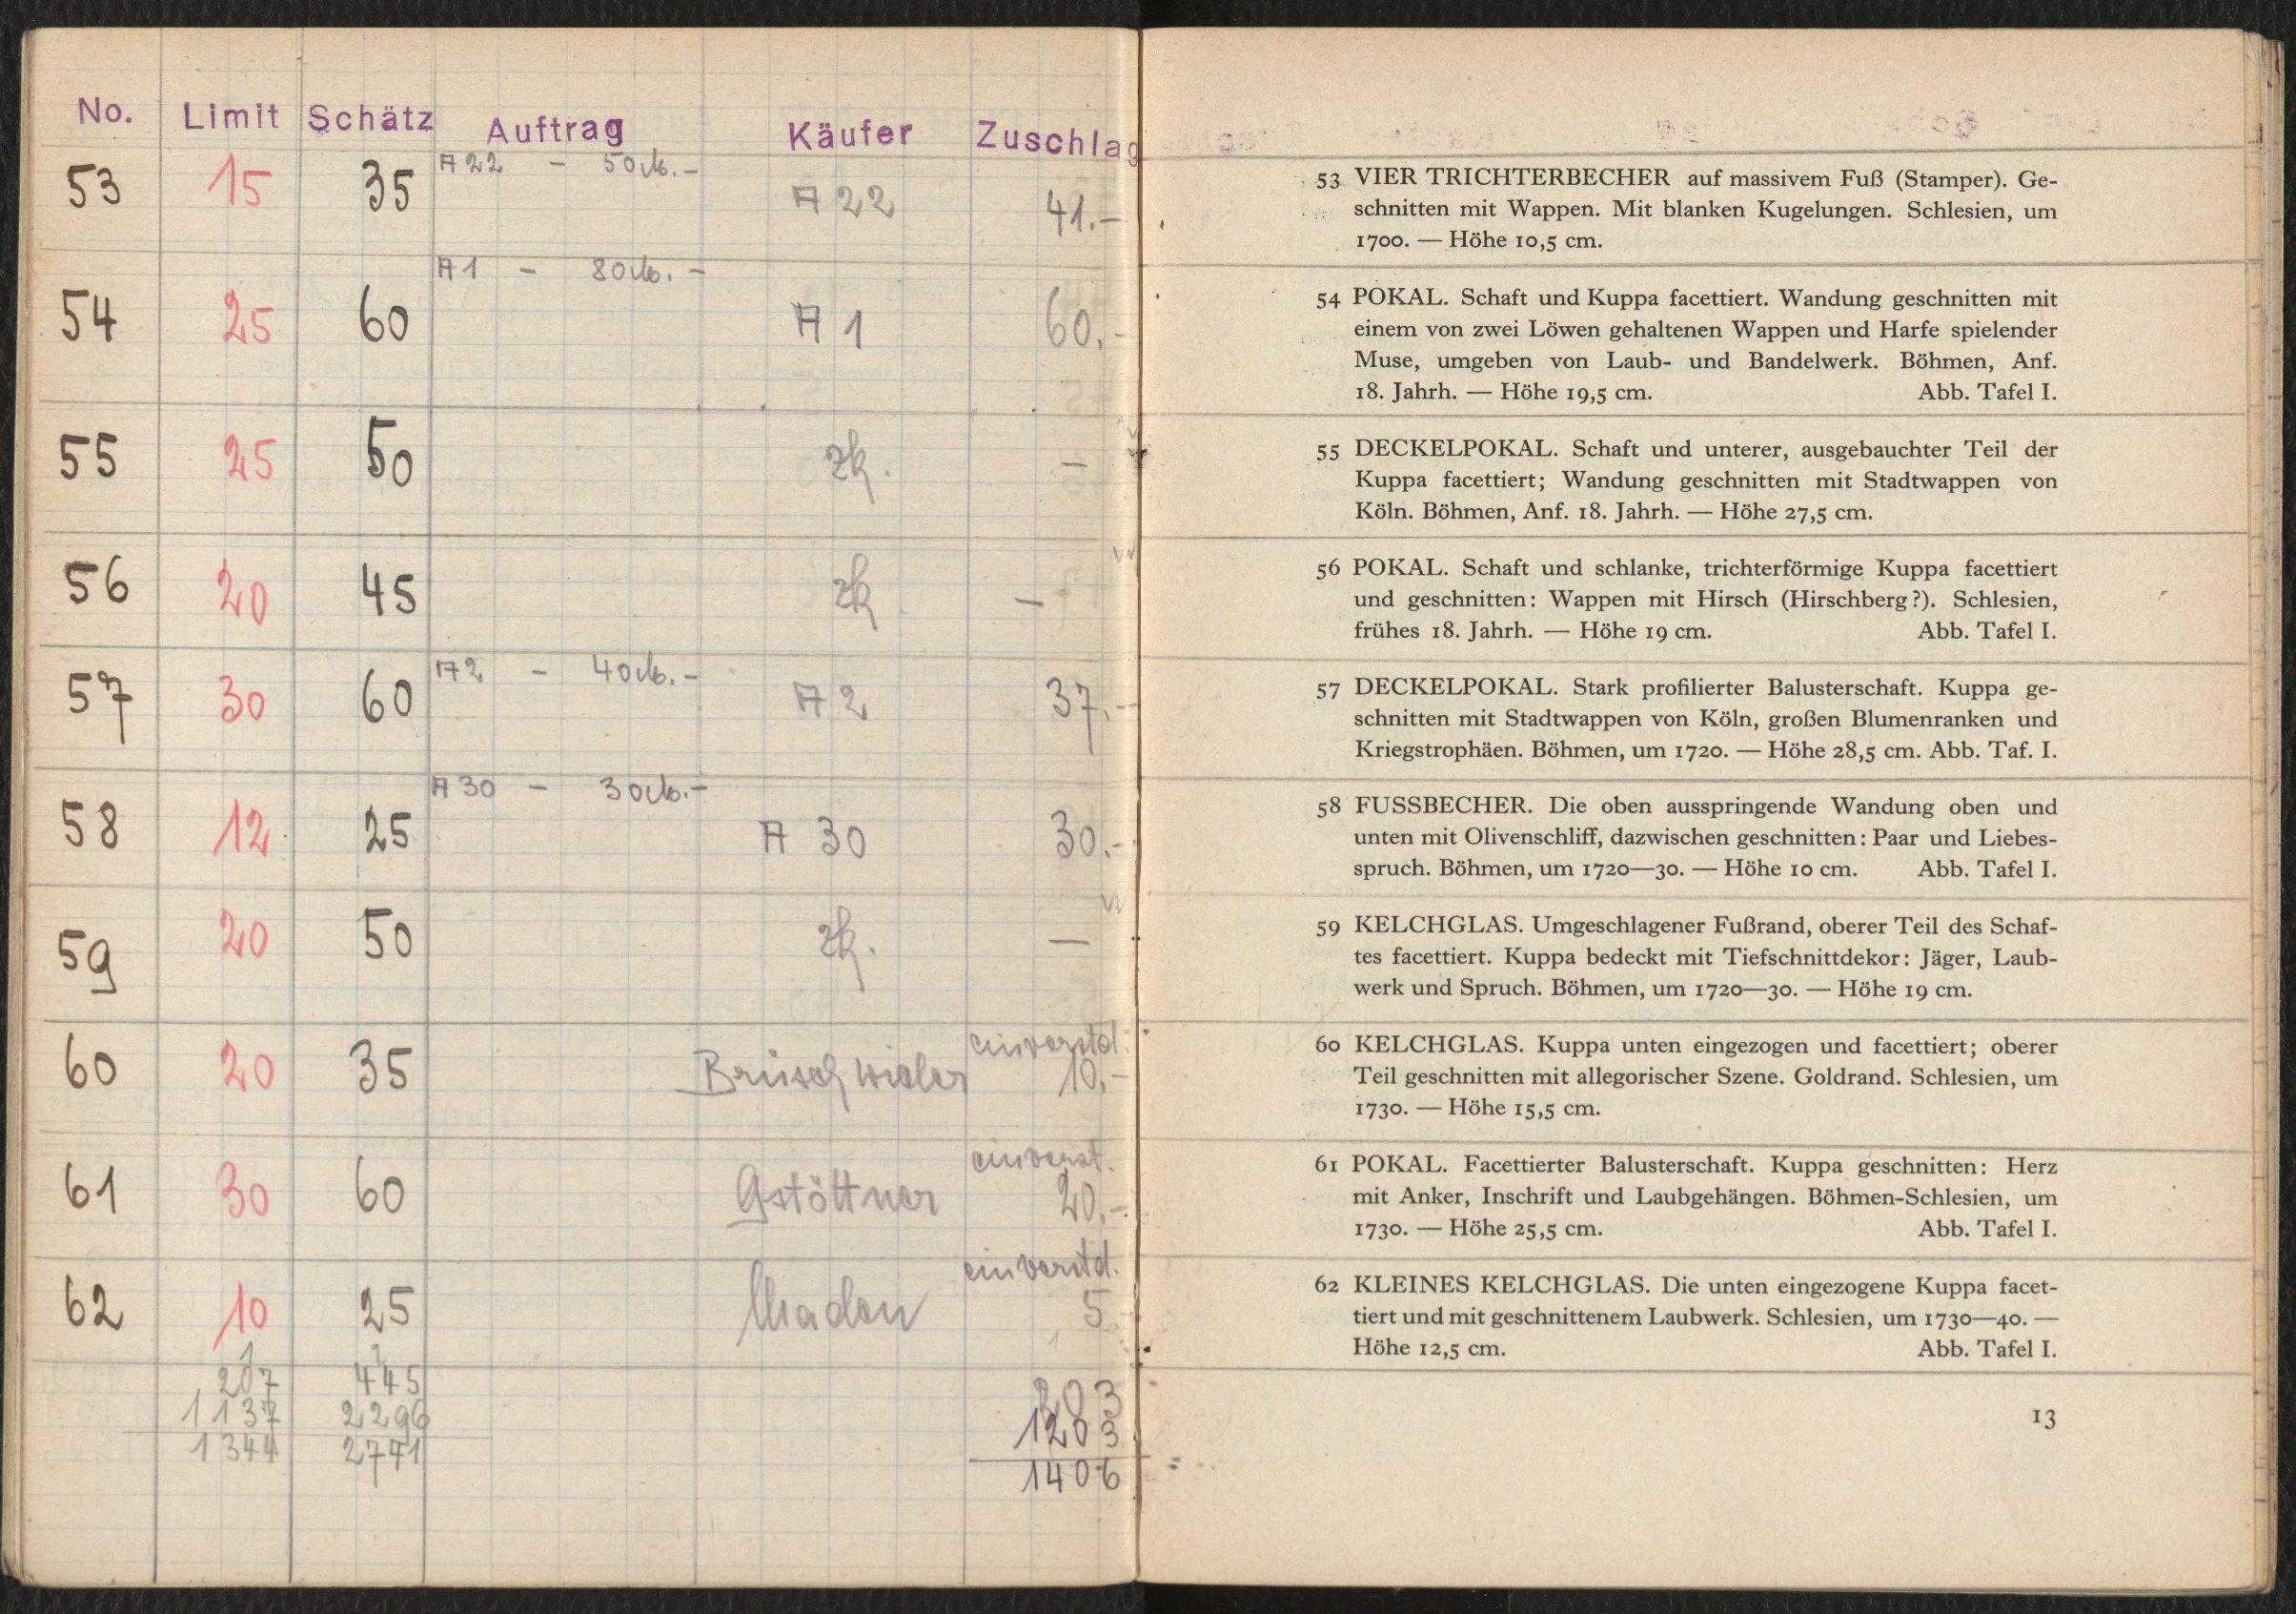 No. Limit Schätz Auftrag Käufer Zuschlag
A 22 – 50 M. –
53 15 35 A 22 41.–
A 1 – 80 M. –
54 25 60 A 1 60.–
55 25 50 zk. –
56 20 45 zk –
A 2 – 40 M. –
57 30 60 A 2 37.–
A 30 – 30 M. –
58 12 25 A 30 30.–
59 20 50 zk. –
einverstd.
60 20 35 Brüschwieler 10.–
einverst.
61 30 60 Gstöttner 20.–
einverstd.
62 10 25 5.
207 445 203
1137 2296 1203
1344 2741 1406
53 VIER TRICHTERBECHER auf massivem Fuß (Stamper). Ge-
schnitten mit Wappen. Mit blanken Kugelungen. Schlesien, um
1700. — Höhe 10,5 cm.
54 POKAL. Schaft und Kuppa facettiert. Wandung geschnitten mit
einem von zwei Löwen gehaltenen Wappen und Harfe spielender
Muse, umgeben von Laub- und Bandelwerk. Böhmen, Anf.
18. Jahrh. — Höhe 19,5 cm. Abb. Tafel I.
55 DECKELPOKAL. Schaft und unterer, ausgebauchter Teil der
Kuppa facettiert; Wandung geschnitten mit Stadtwappen von
Köln. Böhmen, Anf. 18. Jahrh. — Höhe 27,5 cm.
56 POKAL. Schaft und schlanke, trichterförmige Kuppa facettiert
und geschnitten: Wappen mit Hirsch (Hirschberg?). Schlesien,
frühes 18. Jahrh. — Höhe 19 cm. Abb. Tafel I.
57 DECKELPOKAL. Stark profilierter Balusterschaft. Kuppa ge-
schnitten mit Stadtwappen von Köln, großen Blumenranken und
Kriegstrophäen. Böhmen, um 1720. — Höhe 28,5 cm. Abb. Taf. I.
58 FUSSBECHER. Die oben ausspringende Wandung oben und
unten mit Olivenschliff, dazwischen geschnitten: Paar und Liebes-
spruch. Böhmen, um 1720—30. — Höhe 10 cm. Abb. Tafel I.
59 KELCHGLAS. Umgeschlagener Fußrand, oberer Teil des Schaf-
tes facettiert. Kuppa bedeckt mit Tiefschnittdekor: Jäger, Laub-
werk und Spruch. Böhmen, um 1720—30. — Höhe 19 cm.
60 KELCHGLAS. Kuppa unten eingezogen und facettiert; oberer
Teil geschnitten mit allegorischer Szene. Goldrand. Schlesien, um
1730. — Höhe 15,5 cm.
61 POKAL. Facettierter Balusterschaft. Kuppa geschnitten: Herz
mit Anker, Inschrift und Laubgehängen. Böhmen-Schlesien, um
1730. — Höhe 25,5 cm. Abb. Tafel I.
62 KLEINES KELCHGLAS. Die unten eingezogene Kuppa facet-
tiert und mit geschnittenem Laubwerk. Schlesien, um 1730—40. —
Höhe 12,5 cm. Abb. Tafel I.
13